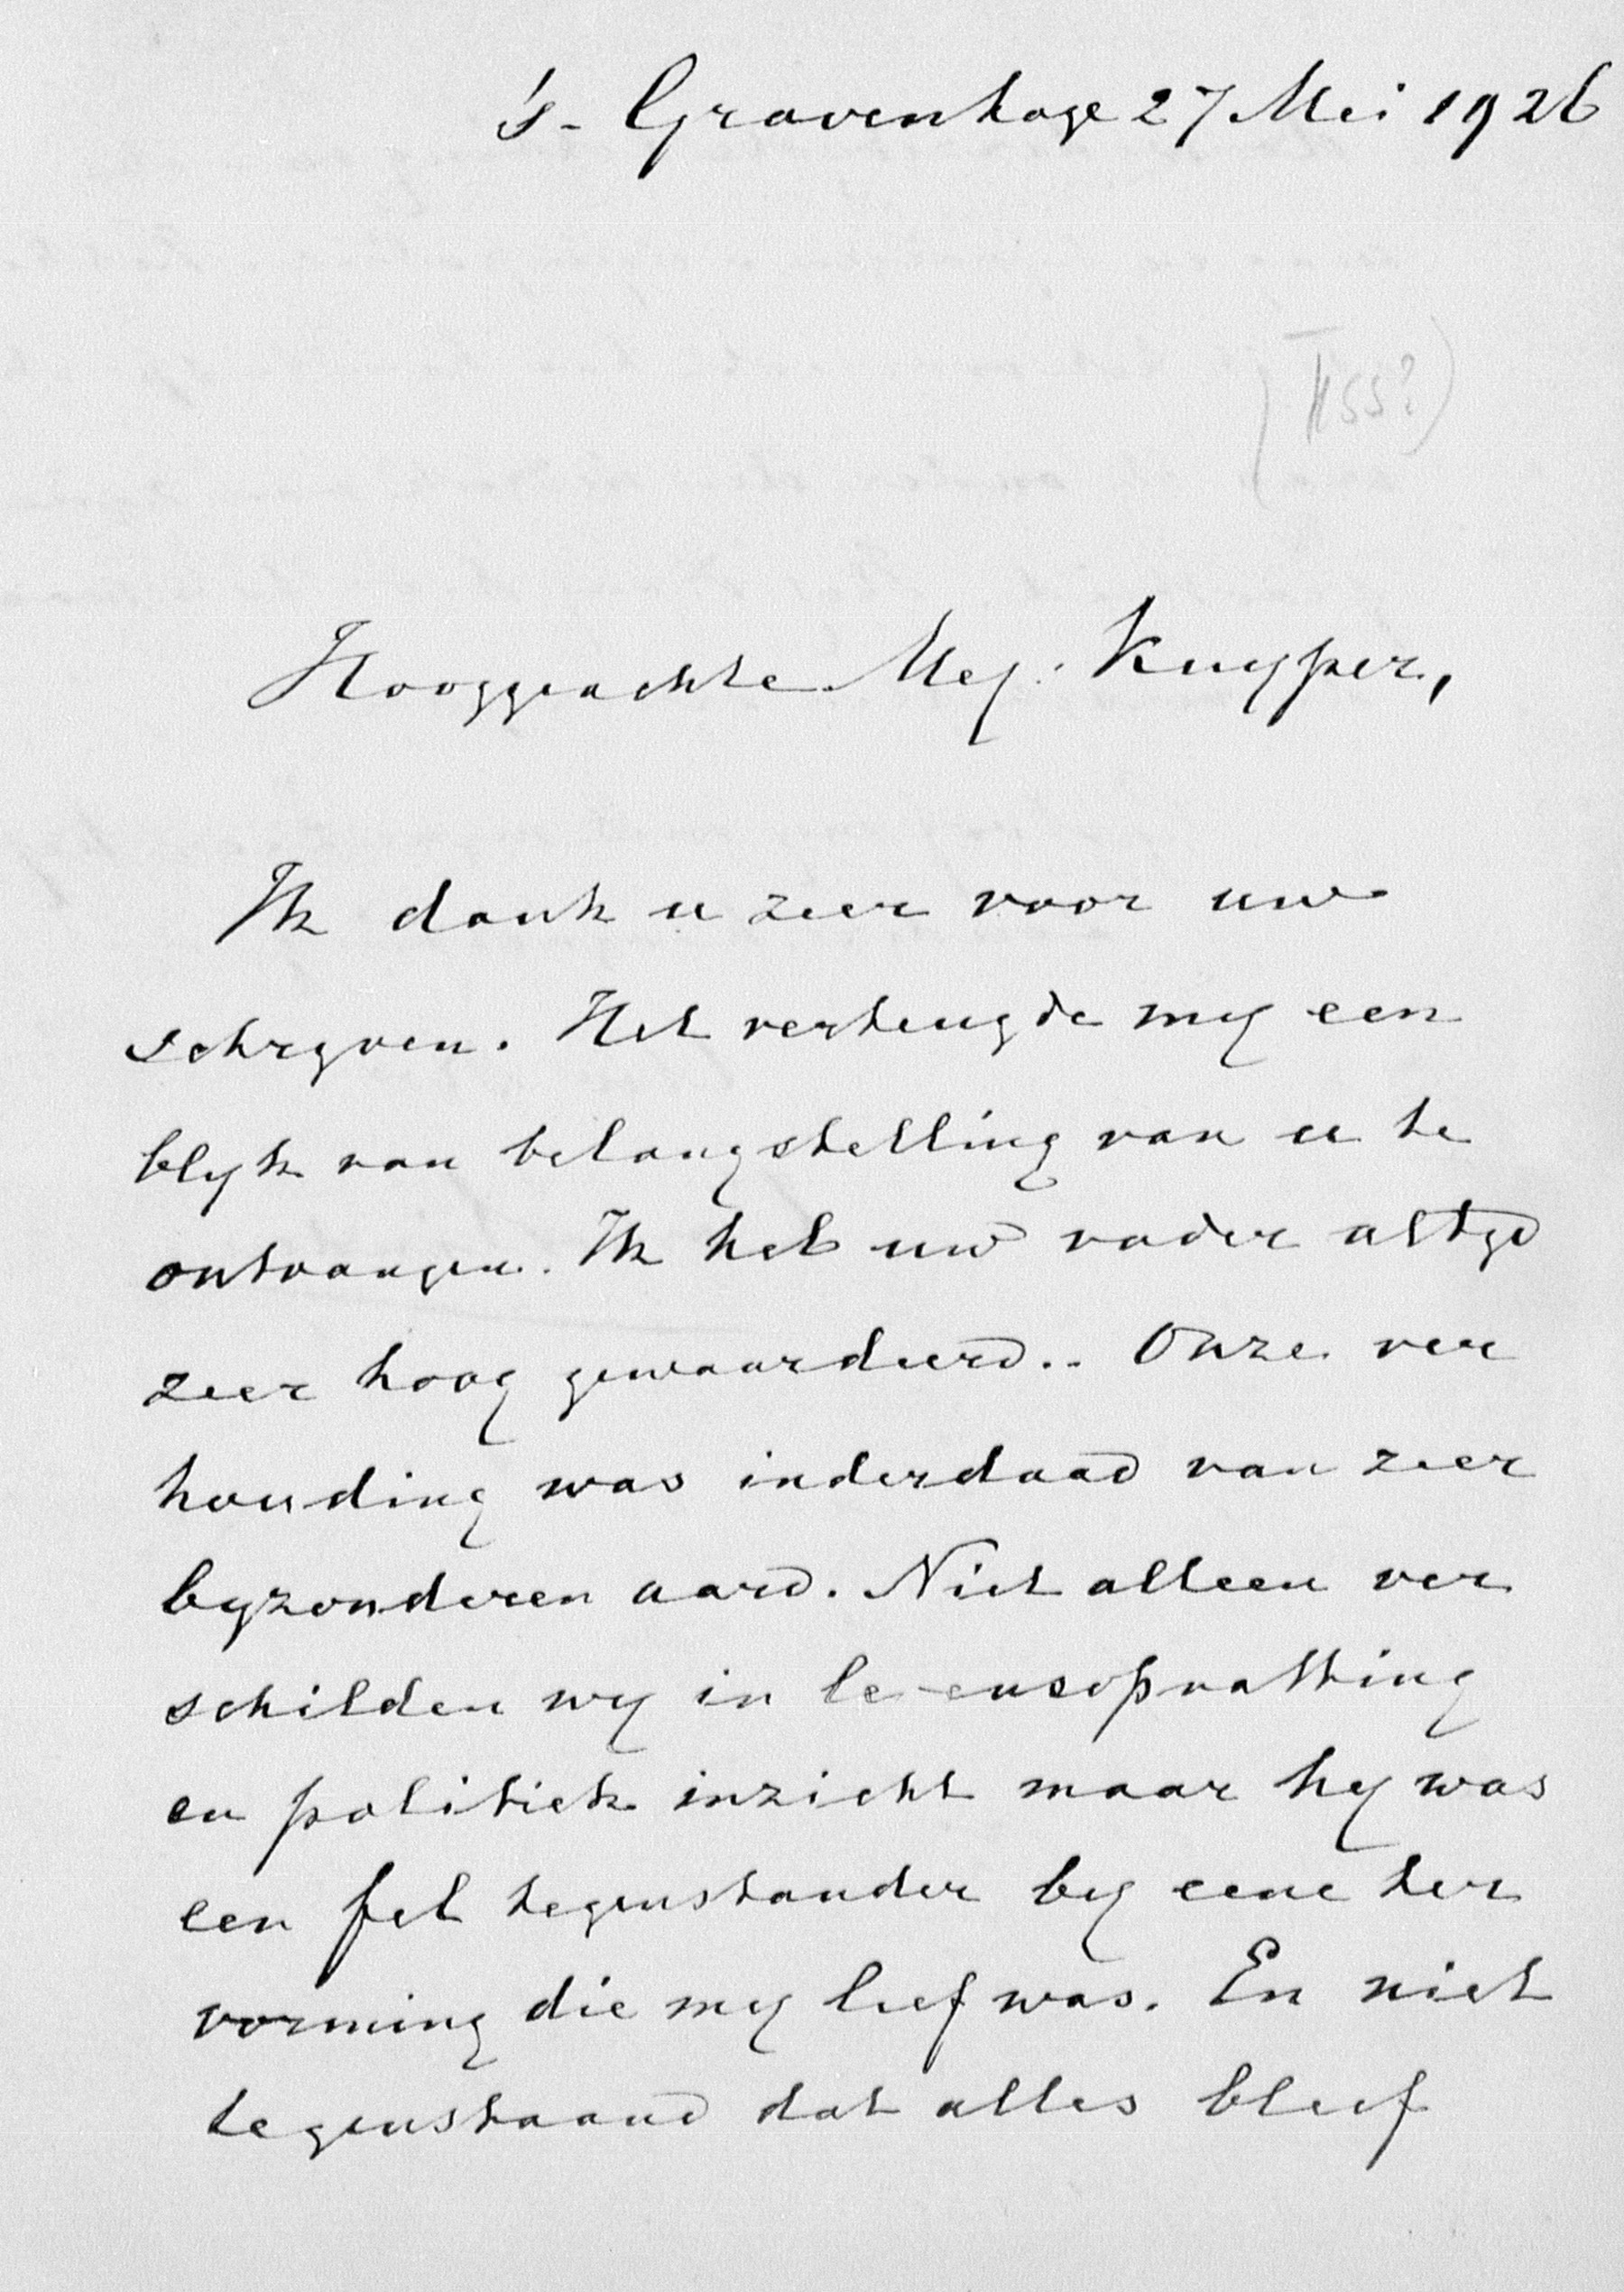 's-Gravenhage 27 Mei 1926
Hooggeachte Mej. Kuyper,
Ik dank u zeer voor uw
schrijven. Het verheugde mij een
blijk van belangstelling van u te
ontvangen. Ik heb uw vader altijd
zeer hoog gewaardeerd.. Onze ver
houding was inderdaad van zeer
bijzonderen aard. Niet alleen ver
schilden wij in levensopvatting
en politiek inzicht maar hij was
een fel tegenstander bij eene her
vorming die mij lief was. En niet
tegenstaand dat alles bleef